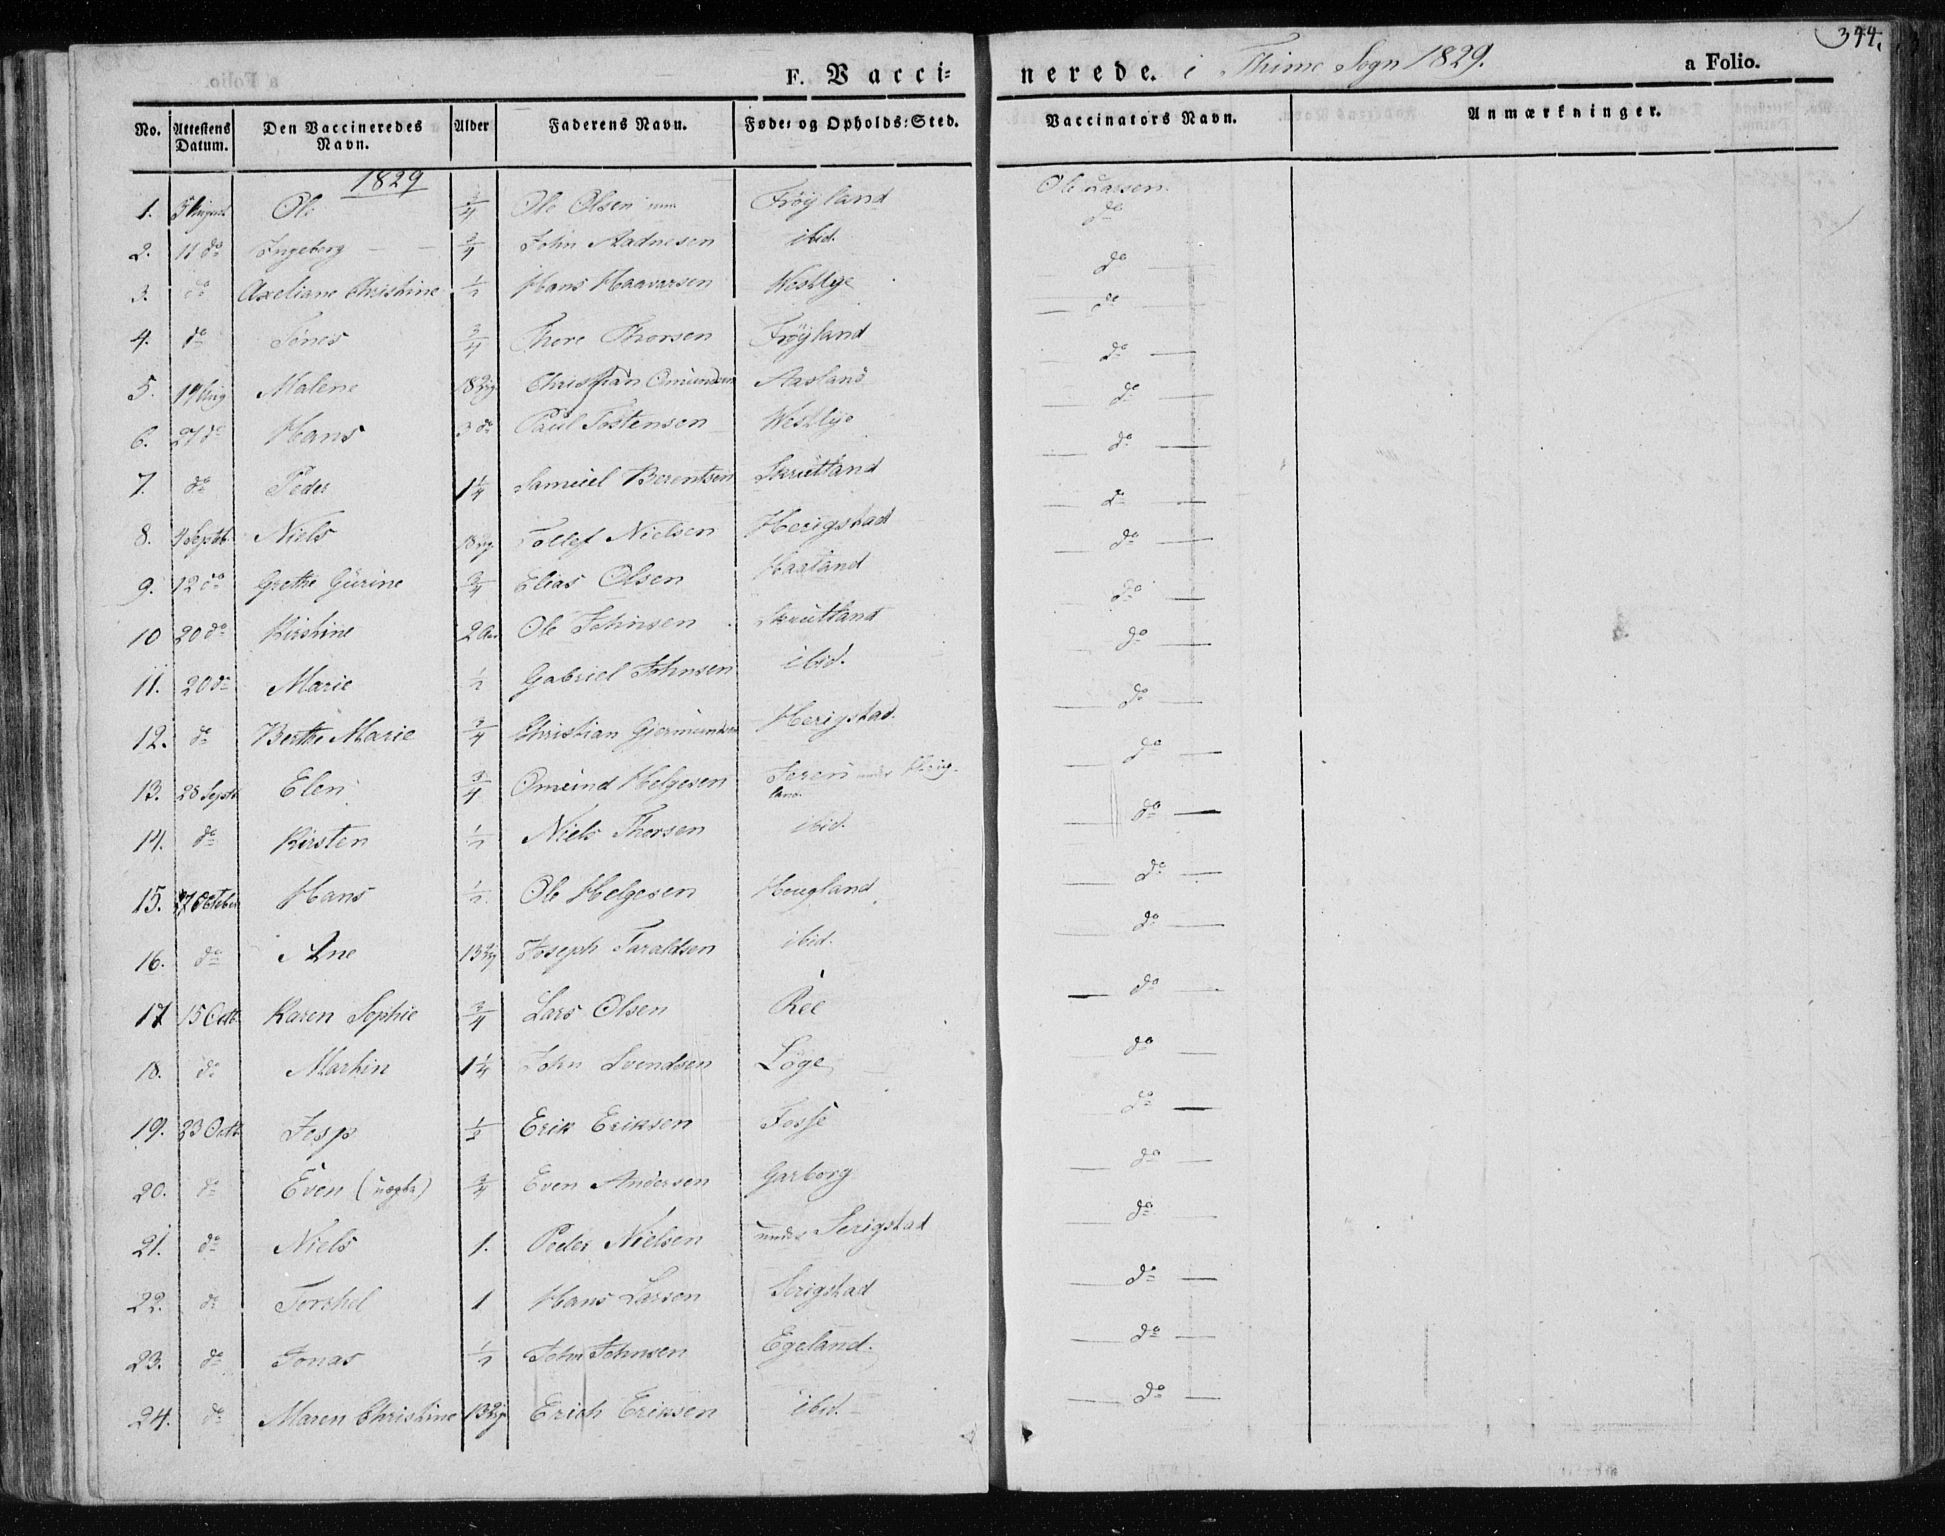 344.
F. Vacci-nerede. i Thime Sogn 1829. a Folio.
No. Attestens Datum. Den Vaccineredes Navn. Alder Faderens Navn. Føde- og Opholds-Sted. Vaccinators Navn. Anmærkninger.
1829
Ole Larsen.
1. 5 August Ole 3/4 Ole Olsen Frøyland do
2. 11 do Ingeborg 3/4 John Aadnesen ibid. do
3. do Axeliane Christine 1/2 Hans Haavarsen Westlye do
4. do Tönes 3/4 Thore Thorsen Frøyland do
5. 19 Aug Malene Christian Omundsen Aasland do
6. 27 do Hans 3 do Paul Tostensen Westlye do
7. do Peder 1 1/4 Samuel Berentsen Skrutland do
8. Septb. Niels Tollef Nielsen Herigstad do
9. 12 do Grethe Gurine 3/4 Elias Olsen Haaland do
10 20 do Kirstine 2 Ole Johnsen Skrutland do
11. 20 do Marie 1/2 Gabriel Johnsen ibid. do
12. do Berthe Marie 3/4 Christian Gjermundsen Herigstad. do
13. 28 Septb Elen 3/4 Omund Helgesen do
14. do Kirsten 1/2 Niels Thorsen ibid. do
15. 7 October Hans 1/2 Ole Helgesen Hougland do
16. do Ane Joseph Taraldsen ibid. do
17 15 Octb. Karen Sophie 3/4 Lars Olsen Ree do
18. do Martin 1 1/4 John Svendsen Løge do
19. 23 Octb Jesp 1/2 Erik Eriksen Fosse do
20. do Even 3/4 Even Andersen Garborg do
21. do Niels 1. Peder Nielsen under Serigstad do
22. do Torkel 1 Hans Larsen Serigstad do
23. do Jonas 1/2 John Johnsen Egeland. do
24. do Maren Christine Erich Eriksen ibid. do